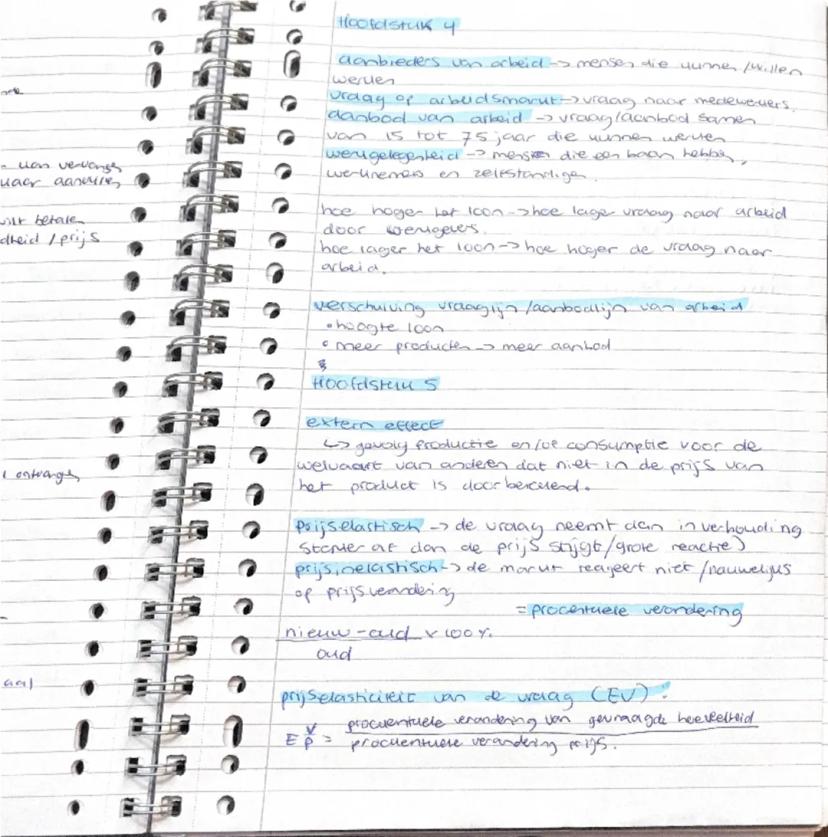 Hoofdstuk 4
aanbieders van arbeid -> mensen die kunnen/willen
werken
vraag op arbeidsmarkt -> vraag naar medewerkers.
aanbod van arbeid -> vraag/aanbod samen
van 15 tot 75 jaar die kunnen werken
werkgelegenheid -> mensen die een baan hebben,
werknemers en zelfstandigen.
hoe hoger het loon -> hoe lager vraag naar arbeid
door werkgevers.
hoe lager het loon -> hoe hoger de vraag naar
arbeid.
verschuiving vraaglijn/aanbodlijn van arbeid
• hoogte loon
• meer producten -> meer aanbod
Hoofdstuk 5
extern effect
↳ gevolg productie en/of consumptie voor de
welvaart van anderen dat niet in de prijs van
het product is doorberekend.
prijselastisch -> de vraag neemt dan in verhouding
sterker af dan de prijs stijgt/grote reactie)
prijsinelastisch -> de markt reageert niet/nauwelijks
op prijsverandering
= procentuele verandering
nieuw - oud x 100%.
oud
prijselasticiteit van de vraag (EV):
E v/p = procentuele verandering van gevraagde hoeveelheid
procentuele verandering prijs.
- kan vervangen
naar aanvullen
wilt betalen
dheid/prijs
ontvangen
aal